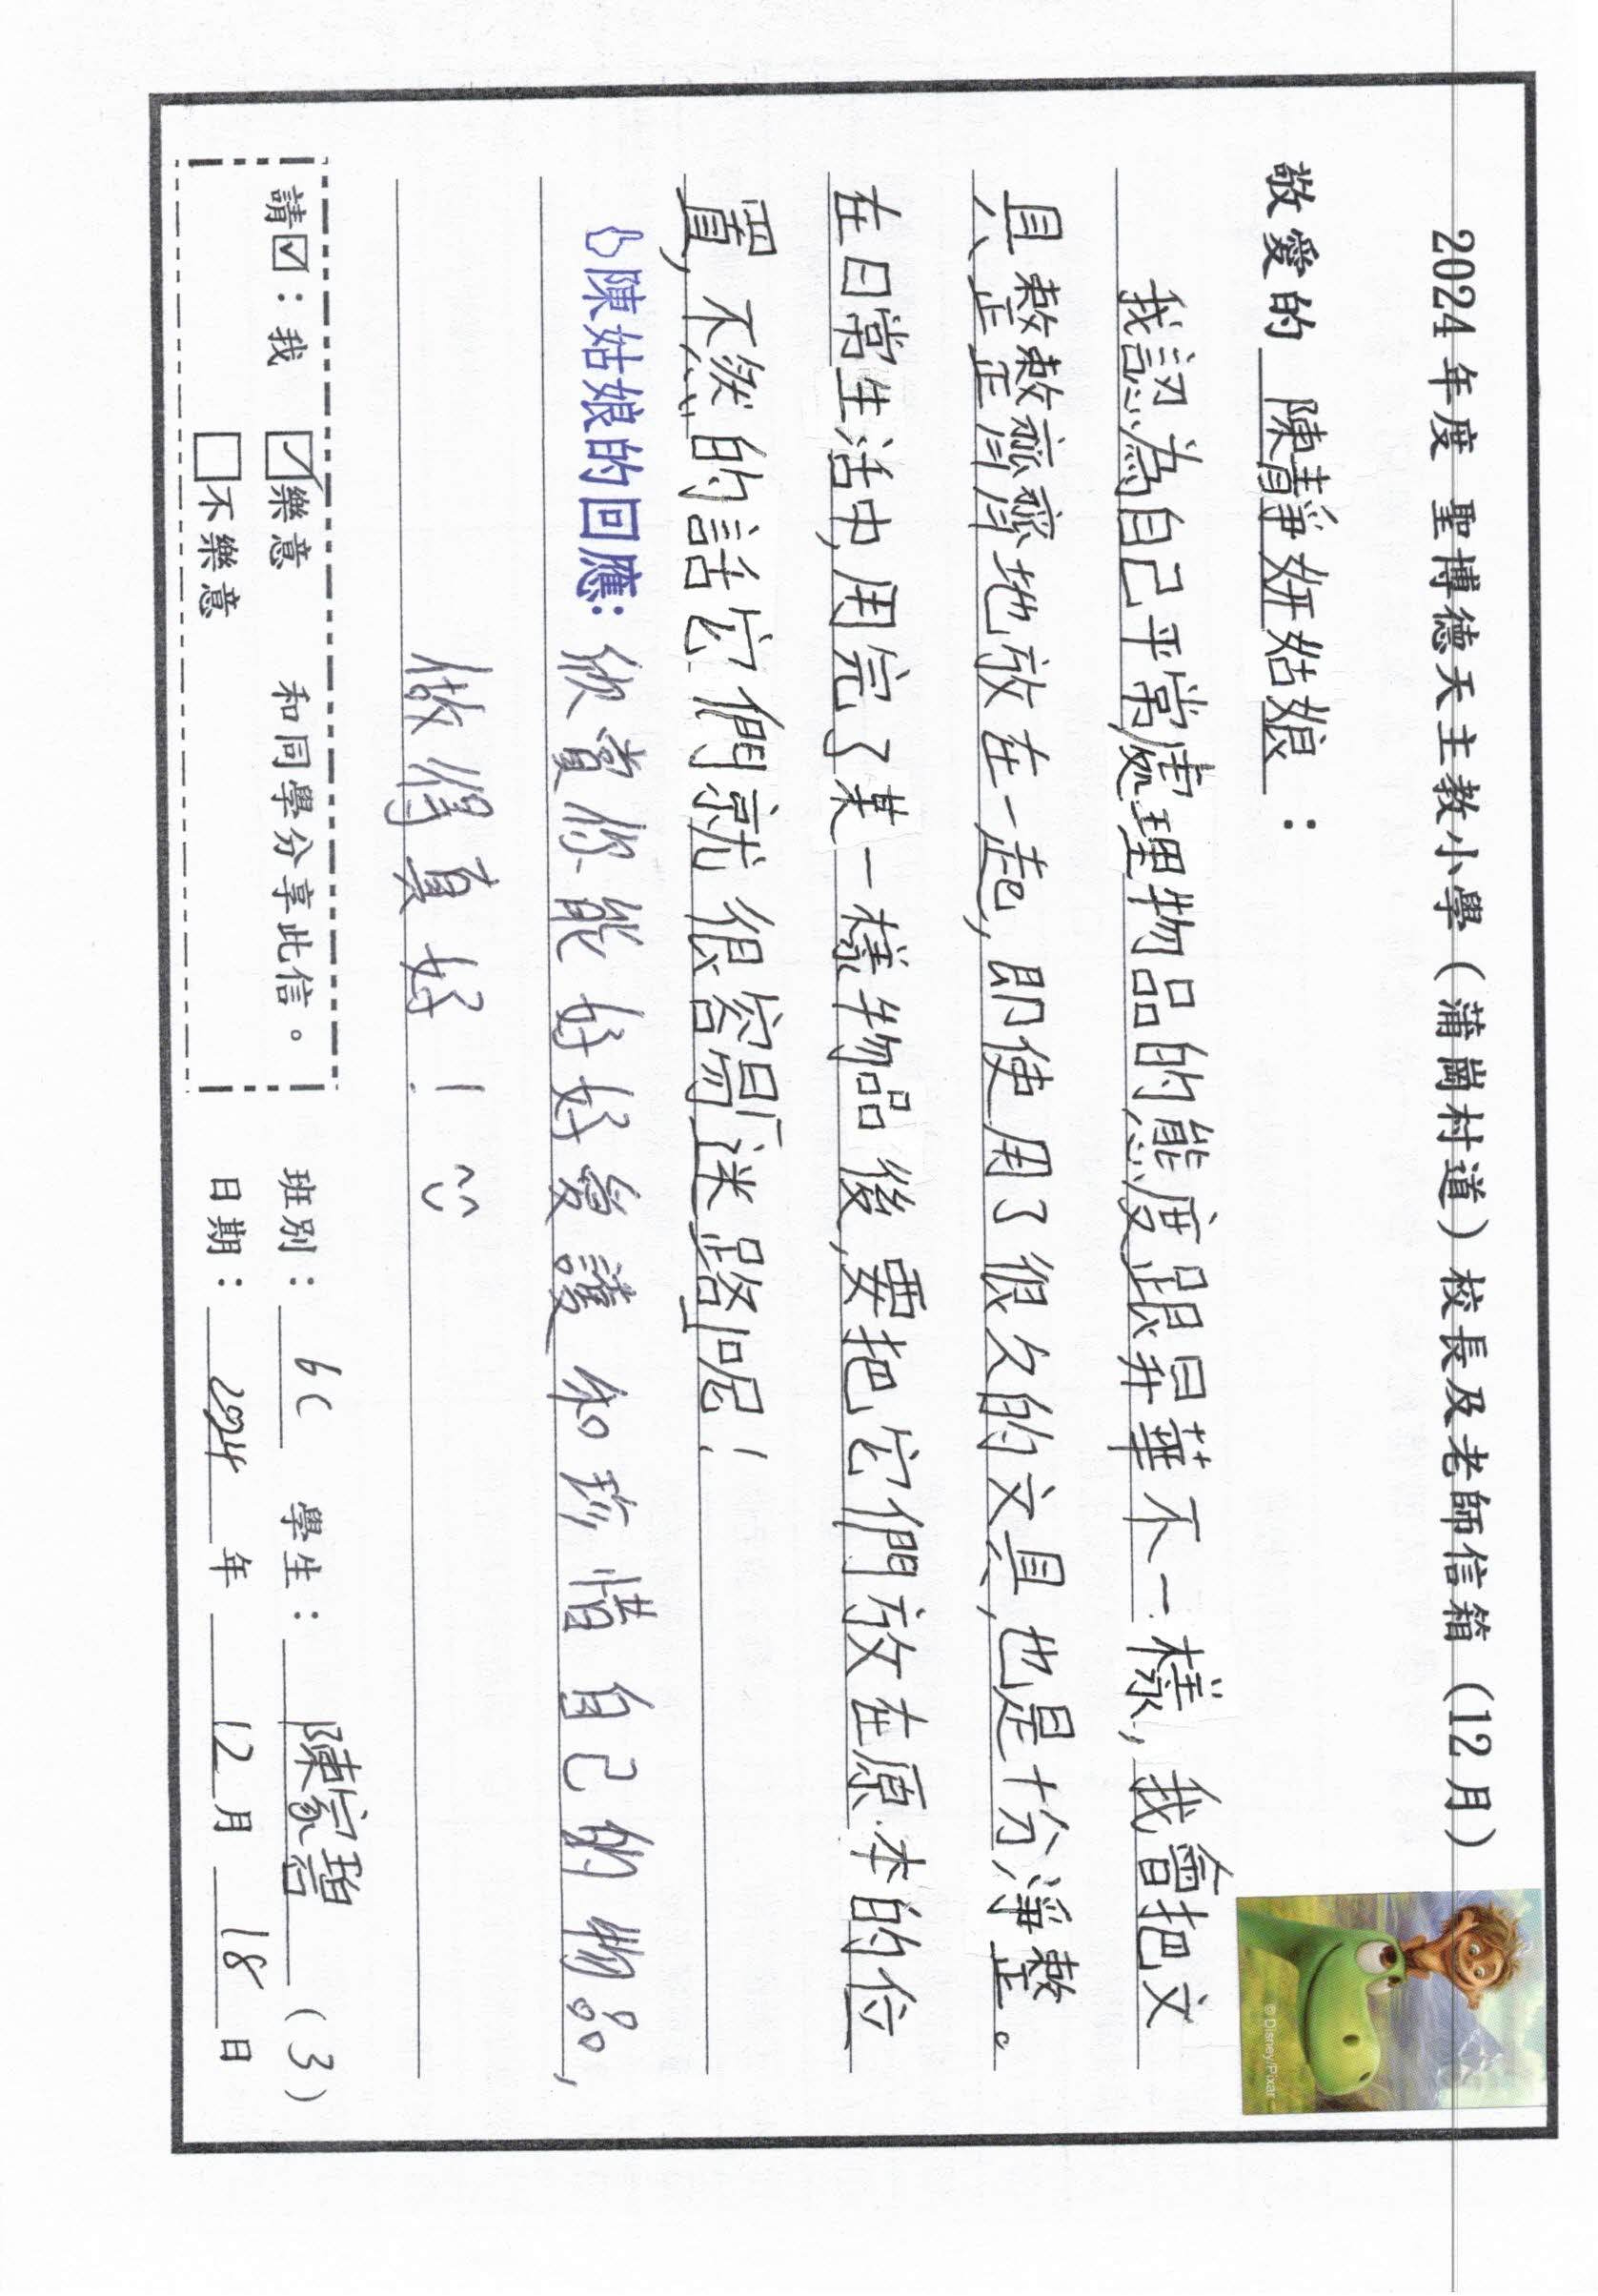 2024 年度 聖博德天主教小學（蒲崗村道）校長及老師信箱（12 月）
敬愛的 陳靜妍姑娘：
我認為自己平常處理物品的態度跟昇華不一樣，我會把文
具整整齊齊地放在一起，即使用了很久的文具，也是十分淨整。
在日常生活中，用完了某一樣物品後，要把它們放在原本的位
置，不然的話它們就很容易迷路呢！
陳姑娘的回應：欣賞你能好好愛護和珍惜自己的物品，
做得真好！
請☑：我 ☑樂意 和同學分享此信。
☐不樂意
班別：6C 學生：陳家瑨（3）
日期：2024 年 12 月 18 日
© Disney/Pixar